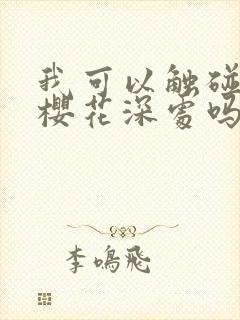 我可以触碰
樱花深处吗
李鸣飞